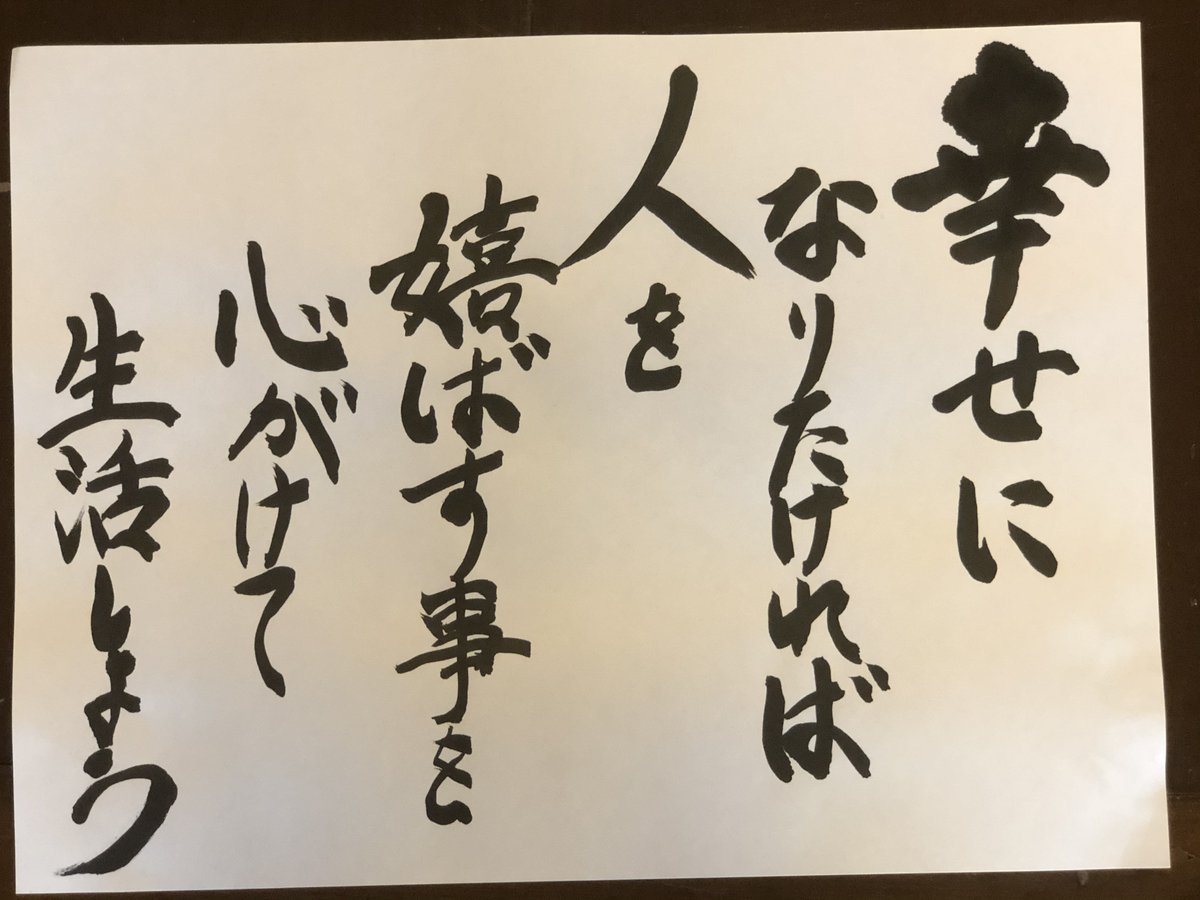 幸せに
なりたければ
人を
嬉ばす事を
心がけて
生活しよう